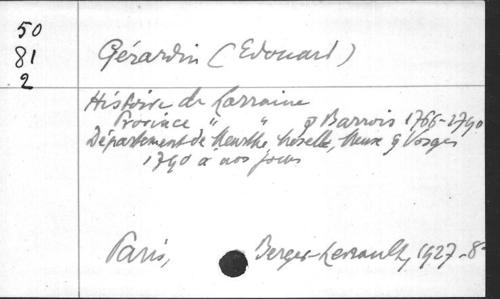 50
81
2
Gérardin (Edouard)
Histoire de Lorraine
Province " " & Barrois 1766-1790
Département de Meurthe, Moselle, Meuse & Vosges
1790 à nos jours
Paris, Berger-Levrault, 1927-8°